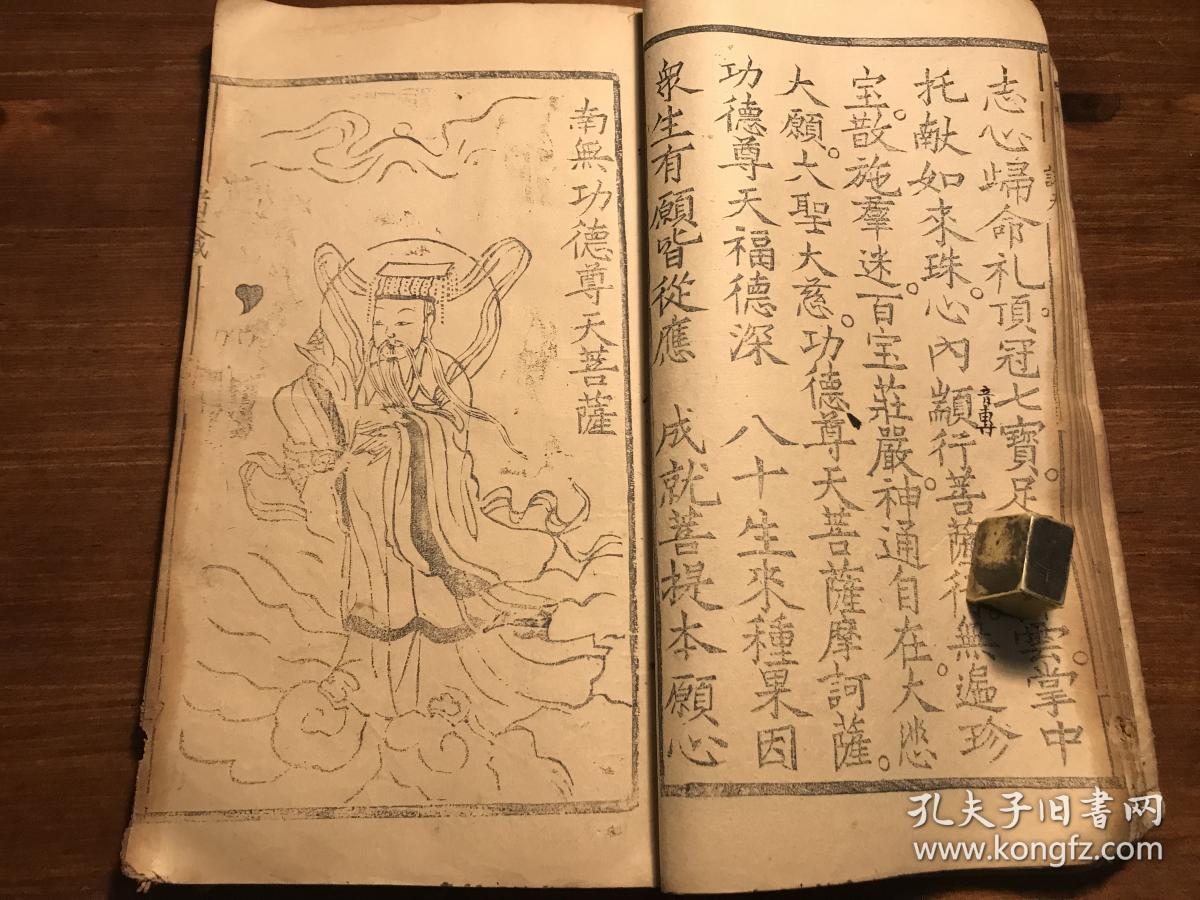 志心歸命礼。頂冠七寶。足雲。掌中
托献如來珠。心內顓行菩薩行。無遍珍
音專
宝。散施羣迷。百宝莊嚴。神通自在。大悲
大願。大聖大慈。功德尊天菩薩摩訶薩。
功德尊天福德深　八十生來種果因
衆生有願皆從應　成就菩提本願心
南無功德尊天菩薩
孔夫子旧书网
www.kongfz.com